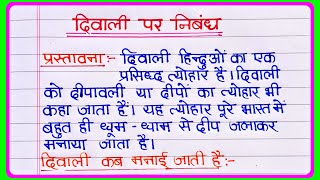 दिवाली पर निबंध
प्रस्तावना:- दिवाली हिन्दुओं का एक
प्रसिध्द त्योहार हैं। दिवाली
को दीपावली या दीपों का त्योहार भी
कहा जाता हैं। यह त्योहार पूरे भारत में
बहुत ही धूम-धाम से दीप जलाकर
मनाया जाता हैं।
दिवाली कब मनाई जाती हैं:-